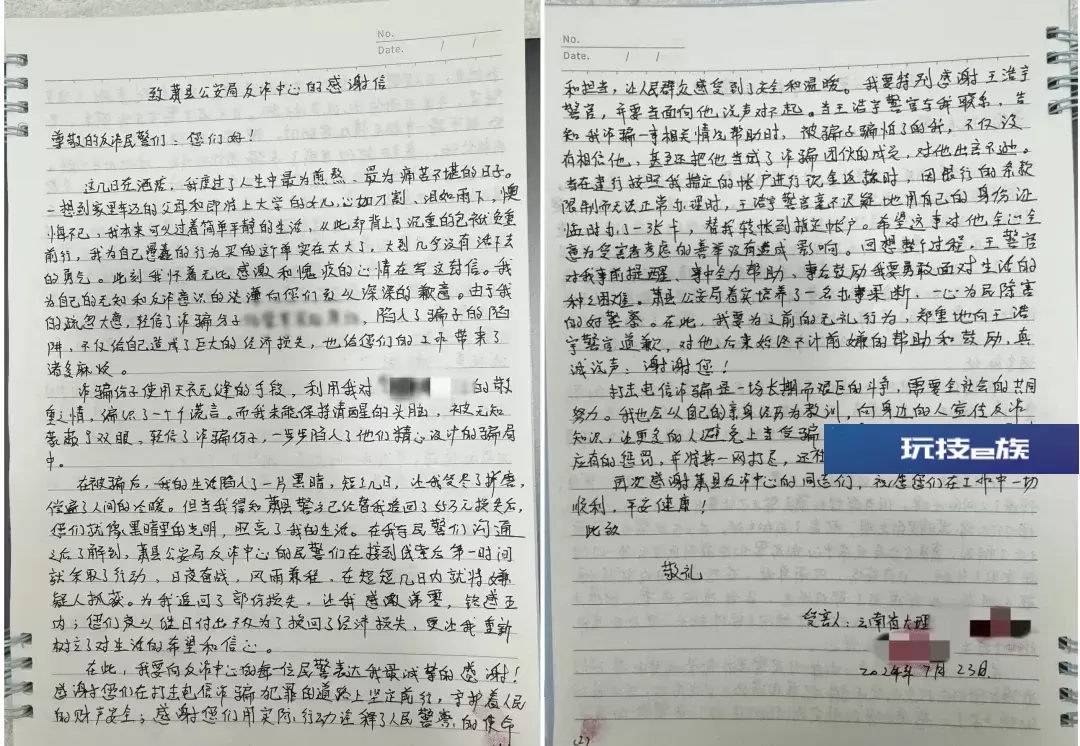 No.
Date. / /
致萧县公安局反诈中心的感谢信
尊敬的反诈民警们：您们好！
这几日在酒店，我度过了人生中最为煎熬、最为痛苦不堪的日子。
一想到家里年迈的父母和即将上大学的女儿，心如刀割、泪如雨下，懊
悔不已，我本来可以过着简单平静的生活，从此却背上了沉重的包袱负重
前行，我为自己愚蠢的行为买的这个单实在太大了，大到几乎没有活下去
的勇气。此刻我怀着无比感激和愧疚的心情在写这封信。我
为自己的无知和反诈意识的淡薄向您们致以深深的歉意。由于我
的疏忽大意，轻信了诈骗分子，陷入了骗子的陷
阱，不仅给自己造成了巨大的经济损失，也给您们的工作带来了
诸多麻烦。
诈骗份子使用天衣无缝的手段，利用我对的敬
重之情，编织了一个个谎言。而我未能保持清醒的头脑，被无知
蒙蔽了双眼，轻信了诈骗份子，一步步陷入了他们精心设计的骗局
中。
在被骗后，我的生活陷入了一片黑暗，短短几日，让我受尽了折磨，
偿遍了人间的冷暖。但当我得知萧县警方已经替我追回了55万元损失后，
您们就像黑暗里的光明，照亮了我的生活。在我与民警们沟通
之后了解到，萧县公安局反诈中心的民警们在接到线索后第一时间
就采取了行动，日夜奋战，风雨兼程，在短短几日内就将嫌
疑人抓获。为我追回了部份损失，让我感激涕零，铭感五
内；您们夜以继日付出不仅为了挽回了经济损失，更让我重新
树立了对生活的希望和信心。
在此，我要向反诈中心的每一位民警表达我最诚挚的感谢！
感谢您们在打击电信诈骗犯罪的道路上坚定前行，守护着人民
的财产安全；感谢您们用实际行动诠释了人民警察的使命
No.
Date. / /
和担当，让人民群众感受到了安全和温暖。我要特别感谢王浩宇
警官，并要当面向他说声对不起。当王浩宇警官与我联系，告
知我诈骗一事相关情况帮助时，被骗子骗怕了的我，不仅没
有相信他，甚至还把他当成了诈骗团伙的成员，对他出言不逊。
当在建行按照我指定的帐户进行现金返款时，因银行的条款
限制而无法正常办理时，王浩宇警官毫不迟疑地用自己的身份证
临时办了一张卡，替我转帐到指定帐户。希望这事对他全心全
意为受害者考虑的善举没有造成影响。回想整个过程，王警官
对我事前提醒、事中全力帮助、事后鼓励我要勇敢面对生活的
种种困难。萧县公安局着实培养了一名办事果断、一心为民除害
的好警察。在此，我要为之前的无礼行为，郑重地向王浩
宇警官道歉，对他后来始终不计前嫌的帮助和鼓励，真
诚说声：谢谢您！
打击电信诈骗是一场长期而艰巨的斗争，需要全社会的共同
努力。我也会以自己的亲身经历为教训，向身边的人宣传反诈
知识，让更多的人避免上当受骗
应有的惩罚，并将其一网打尽，还社
再次感谢萧县反诈中心的同志们，祝愿您们在工作中一切
顺利，平安健康！
此致
敬礼
受害人：云南省大理
2024年7月23日
玩技e族